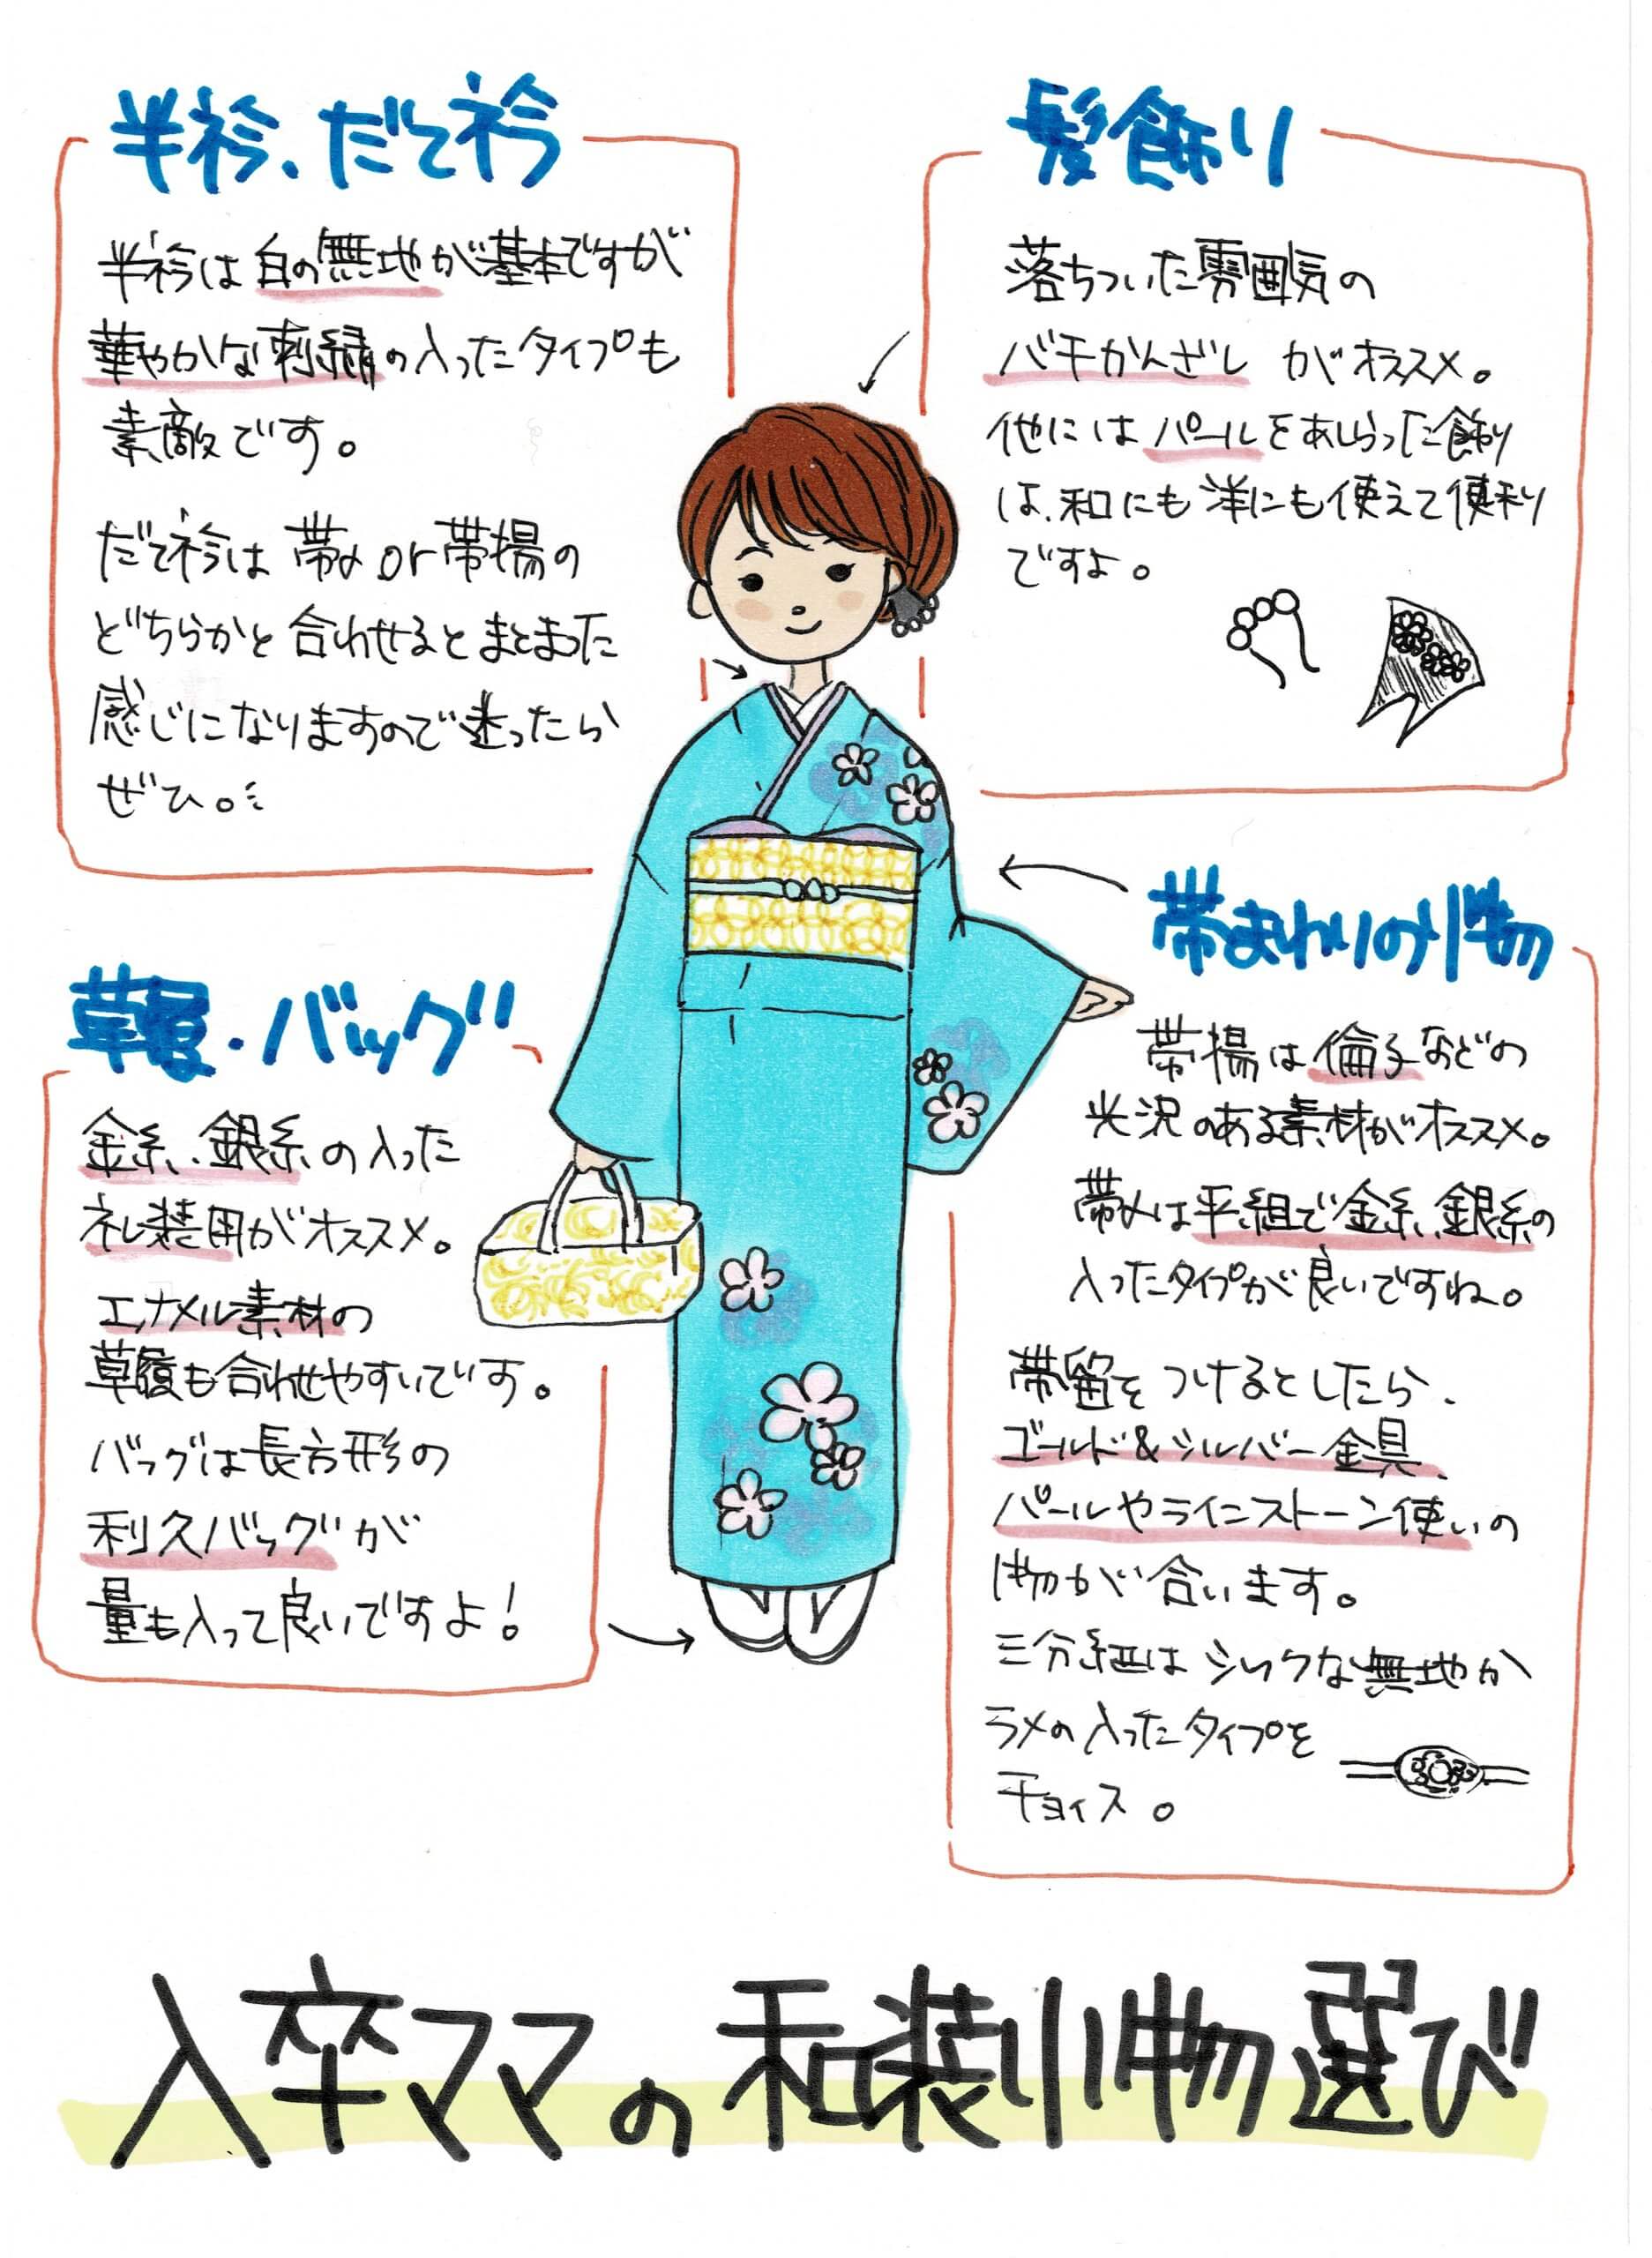 半衿、だて衿
半衿は白の無地が基本ですが
華やかな刺繍の入ったタイプも
素敵です。
だて衿は帯〆or帯揚の
どちらかと合わせるとまとまった
感じになりますので迷ったら
ぜひ。
髪飾り
落ちついた雰囲気の
バチかんざしがオススメ。
他にはパールをあしらった飾り
は、和にも洋にも使えて便利
ですよ。
帯まわりの小物
帯揚は倫子などの
光沢のある素材がオススメ。
帯〆は平組で金糸、銀糸の
入ったタイプが良いですね。
帯留をつけるとしたら、
ゴールド&シルバー金具、
パールやラインストーン使いの
小物が合います。
三分紐はシックな無地か
ラメの入ったタイプを
チョイス。
草履・バッグ
金糸、銀糸の入った
礼装用がオススメ。
エナメル素材の
草履も合わせやすいです。
バッグは長方形の
利久バッグが
量も入って良いですよ!
入卒ママの和装小物選び